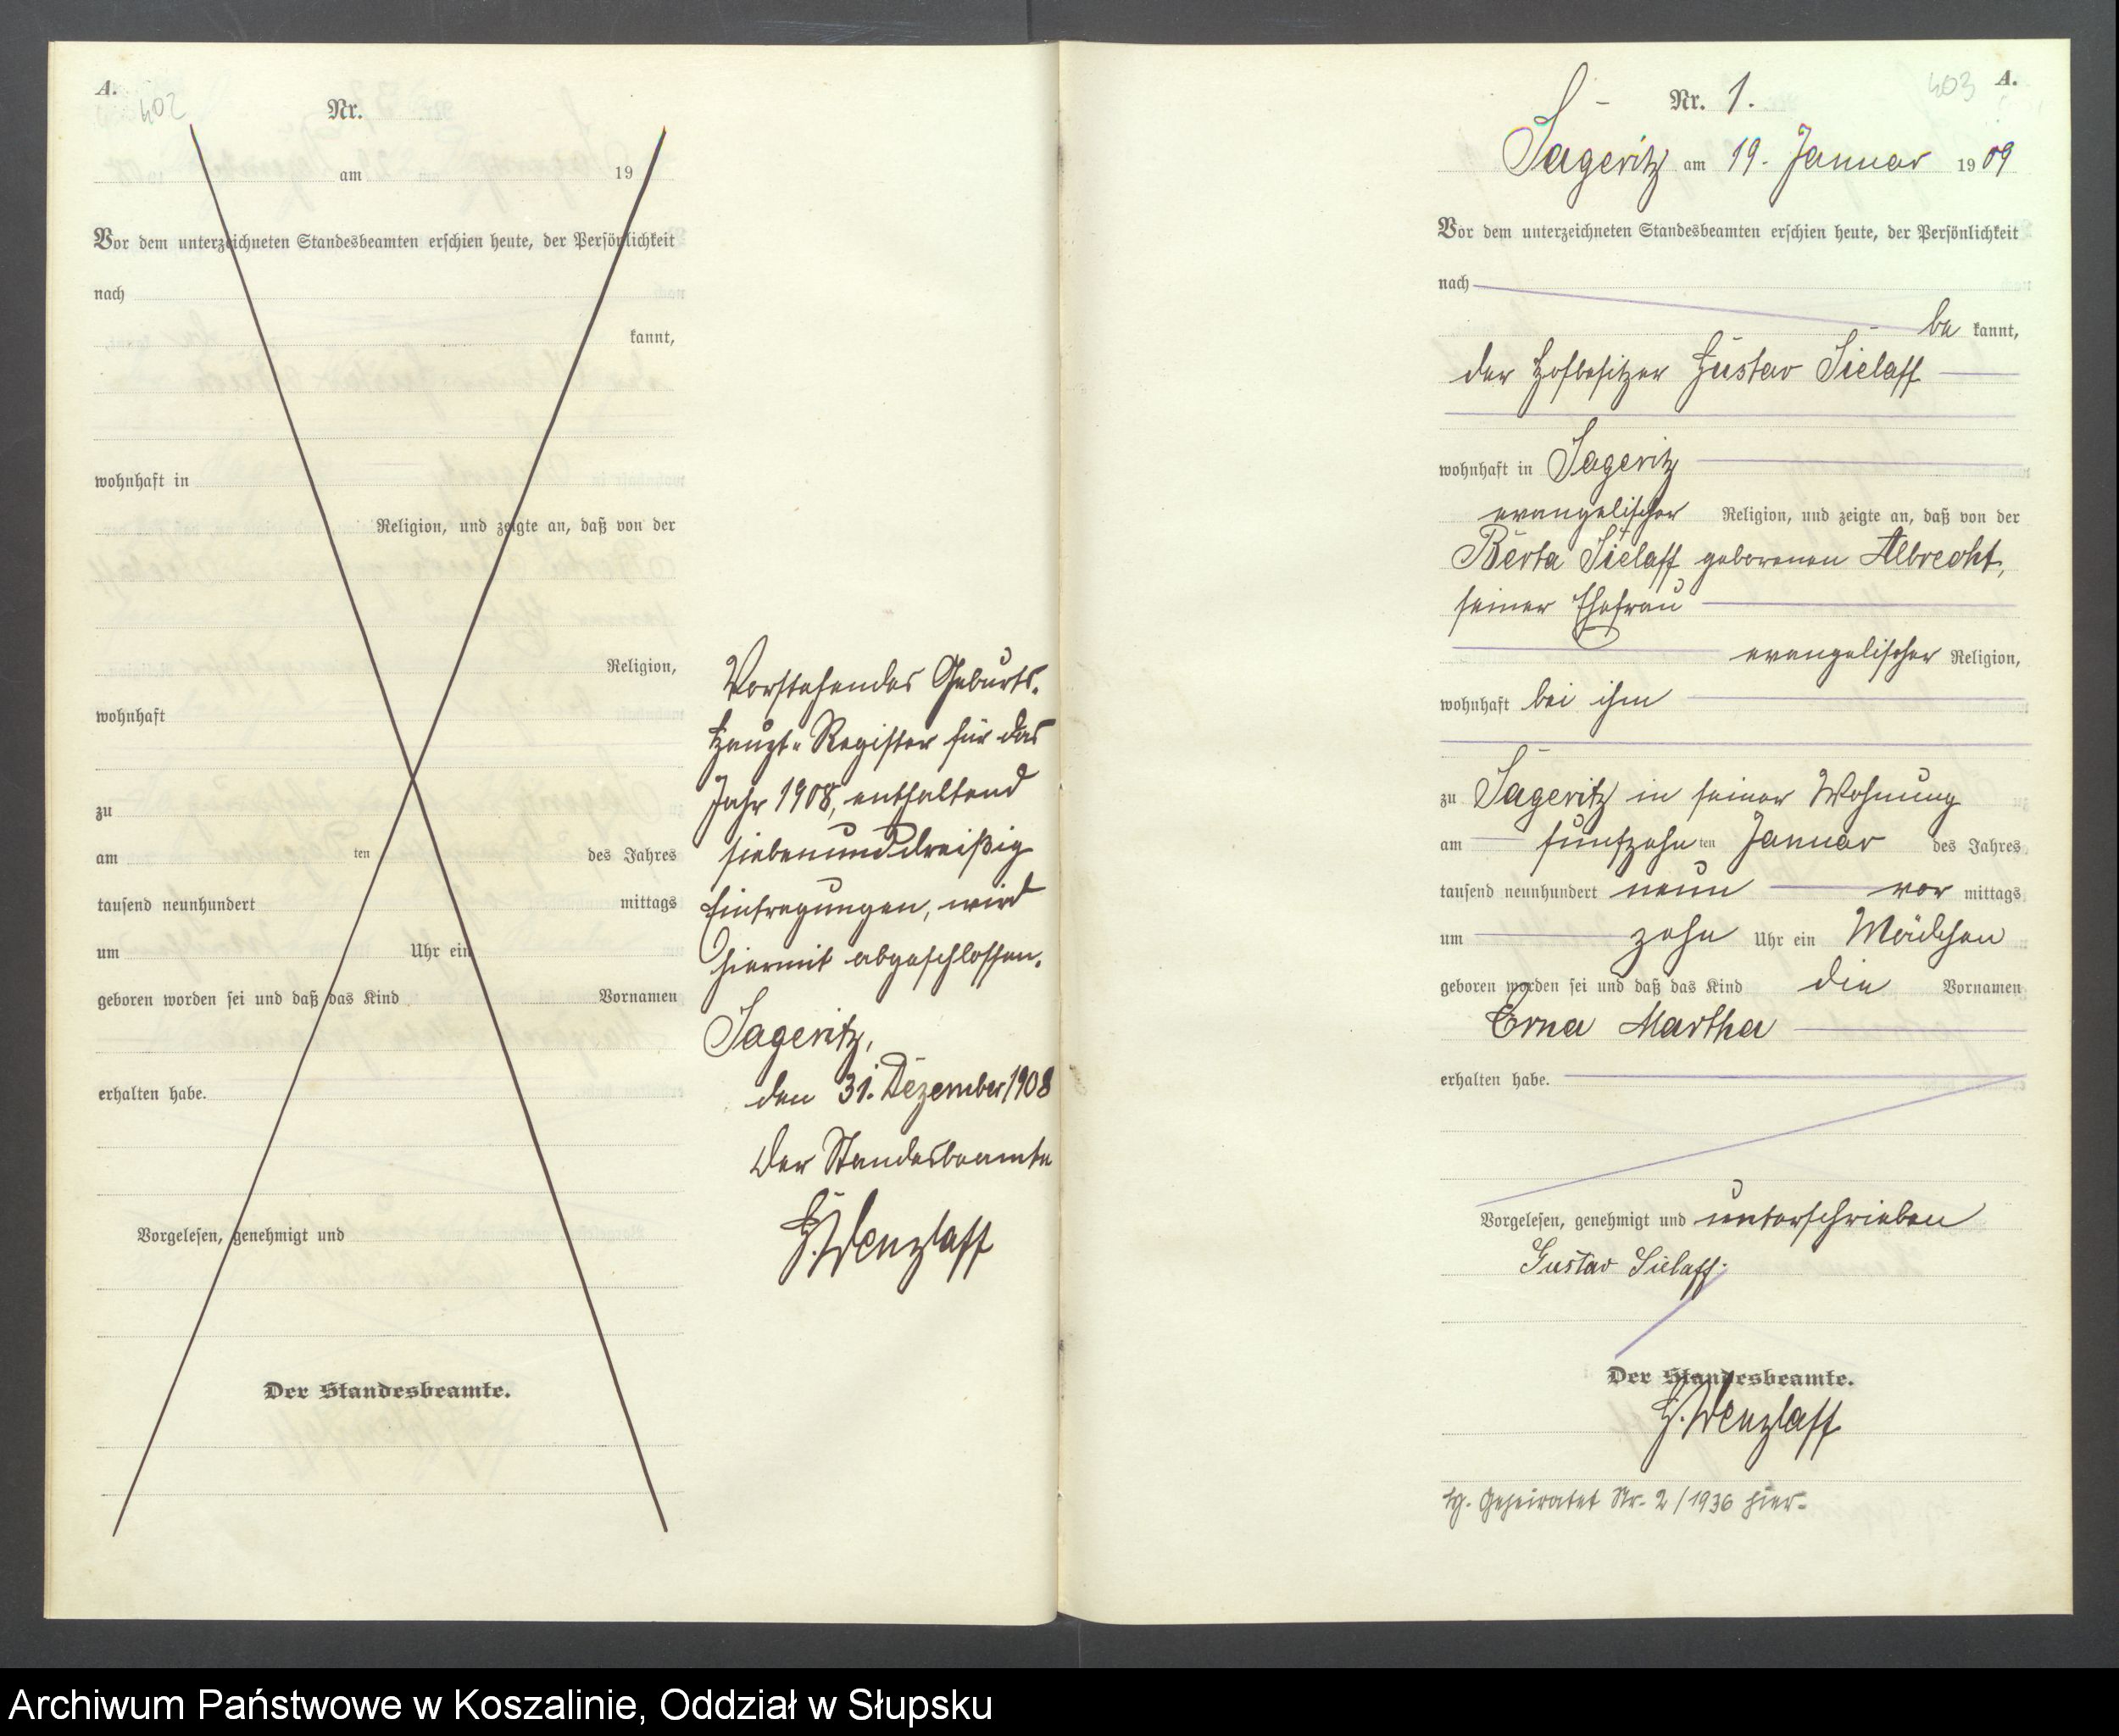 A.
402
Nr.
am 19
Vor dem unterzeichneten Standesbeamten erschien heute, der Persönlichkeit
nach
kannt,
wohnhaft in
Religion, und zeigte an, daß von der
Religion,
wohnhaft
zu
am ten des Jahres
tausend neunhundert mittags
um Uhr ein
geboren worden sei und daß das Kind Vornamen
erhalten habe.
Vorgelesen, genehmigt und
Der Standesbeamte.
Vorstehendes Geburts-
Haupt-Register für das
Jahr 1908, enthaltend
siebenunddreißig
Eintragungen, wird
hiermit abgeschlossen.
Sageritz,
den 31. Dezember 1908
Der Standesbeamte
H. Wenzlaff
403 A.
Nr. 1.
Sageritz am 19. Januar 1909
Vor dem unterzeichneten Standesbeamten erschien heute, der Persönlichkeit
nach
be kannt,
der Hofbesitzer Gustav Sielaff
wohnhaft in Sageritz
evangelischer Religion, und zeigte an, daß von der
Berta Sielaff geborenen Albrecht,
seiner Ehefrau
evangelischer Religion,
wohnhaft bei ihm
zu Sageritz in seiner Wohnung
am fünfzehn ten Januar des Jahres
tausend neunhundert neun vor mittags
um zehn Uhr ein Mädchen
geboren worden sei und daß das Kind die Vornamen
Erna Martha
erhalten habe.
Vorgelesen, genehmigt und unterschrieben
Gustav Sielaff.
Der Standesbeamte.
H. Wenzlaff
Geheiratet Nr. 2/1936 hier.
Archiwum Państwowe w Koszalinie, Oddział w Słupsku